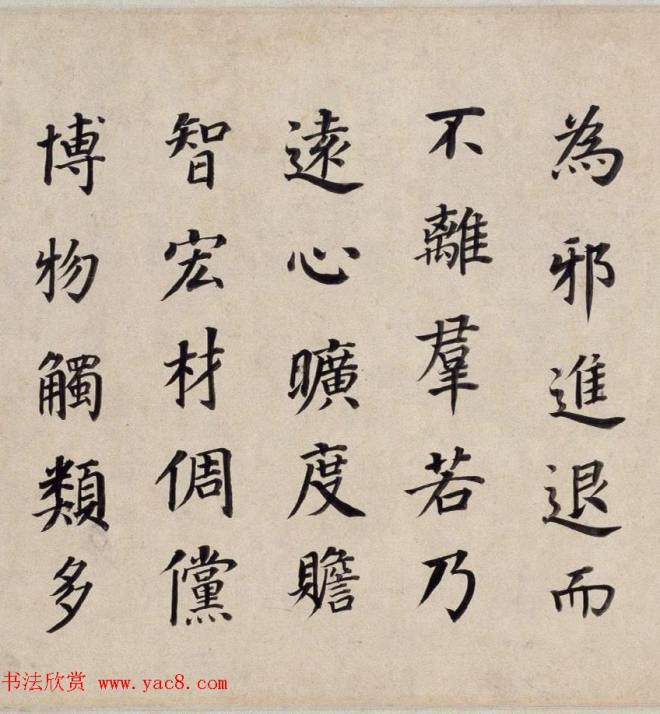 為邪進退而
不離羣若乃
遠心曠度贍
智宏材倜儻
博物觸類多
书法欣赏 www.yac8.com